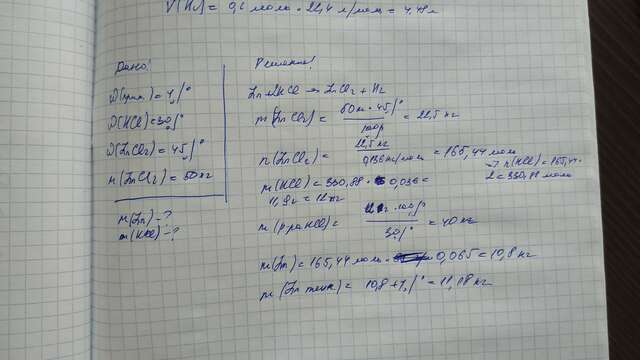 V(H₂) = 0,2 моль · 22,4 л/моль = 4,48 л
Дано:
ω(прим.) = 4%
ω(HCl) = 30%
ω(ZnCl₂) = 45%
m(ZnCl₂) = 50 кг
m(Zn) - ?
m(HCl) - ?
Решение:
Zn + 2HCl → ZnCl₂ + H₂
m(ZnCl₂) = 50кг · 45% / 100% = 22,5 кг
n(ZnCl₂) = 22,5 кг / 0,136 кг/моль = 165,44 моль
→ n(HCl) = 165,44 ·
2 = 330,88 моль
m(HCl) = 330,88 · 0,036 =
11,9 = 12 кг
m(р-ра HCl) = 12 · 100% / 30% = 40 кг
m(Zn) = 165,44 моль · 0,065 = 10,8 кг
m(Zn техн.) = 10,8 + 4% = 11,18 кг